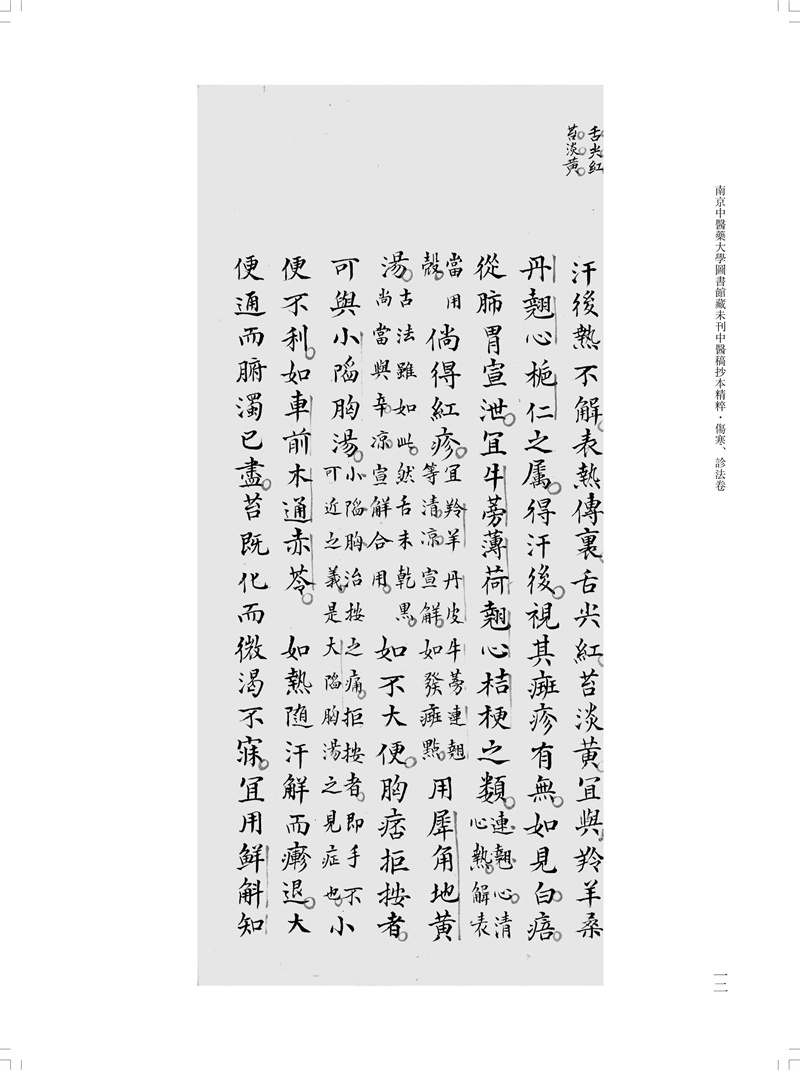 南京中醫藥大學圖書館藏未刊中醫稿抄本精粹·傷寒、診法卷
一二
舌尖紅
苔淡黃
汗後熱不解表熱傳裏舌尖紅苔淡黃宜與羚羊桑
丹翹心梔仁之属得汗後視其癍疹有無如見白㾦
從肺胃宣泄宜牛蒡薄荷翹心桔梗之類連翹心清心熱解表
當用殼倘得紅疹宜羚羊丹皮牛蒡連翹等清凉宣解如發癍點用犀角地黃
湯古法雖如此然舌未乾黑尚當與辛凉宣解合用如不大便胸痞拒按者
可與小陷胸湯小陷胸治按之痛拒按者即手不可近之義是大陷胸湯之見症也小
便不利如車前木通赤苓如熱随汗解而瘮退大
便通而腑濁已盡苔既化而微渴不寐宜用鲜斛知